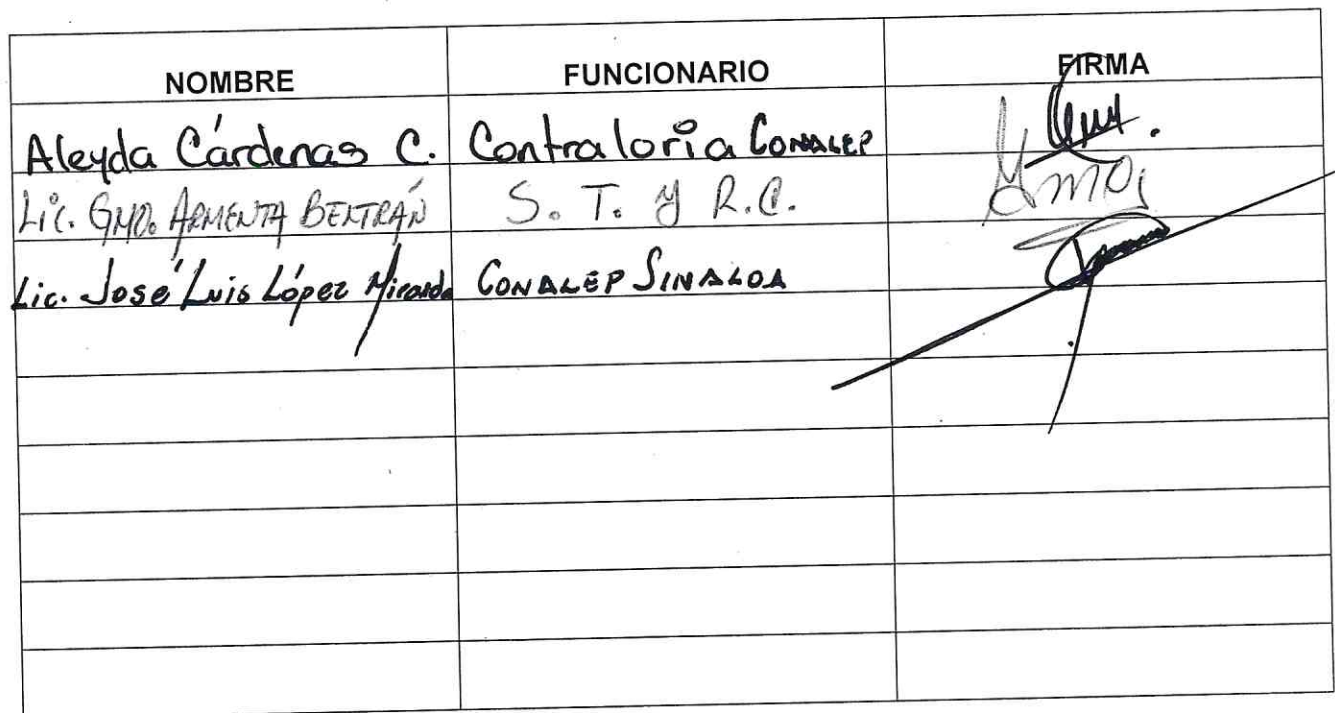 NOMBRE FUNCIONARIO FIRMA
Aleyda Cárdenas C. Contraloría CONALEP
Lic. GMO. ARMENTA BELTRÁN S. T. y R.C.
Lic. José Luis López Miranda CONALEP SINALOA